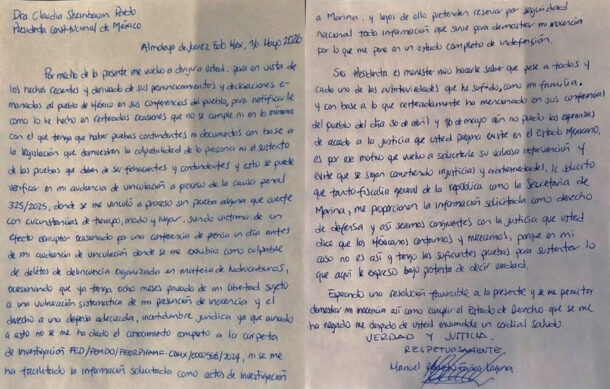 Dra Claudia Sheinbaum Pardo
Presidenta Constitucional de México
Almoloya de Juarez Edo Mex, 16 Mayo 2026
Por medio de la presente me vuelvo a dirigir a usted, pero en vista de
los hechos recientes y derivado de sus pronunciamientos y declaraciones e-
manados al pueblo de México en sus conferencias del pueblo, para notificarle
como lo he hecho en reiteradas ocasiones que no se cumple ni en lo mínimo
con el que tenga que haber pruebas contundentes ni documentos con base a
la legislación que demuestren la culpabilidad de la persona ni el sustento
de las pruebas que deben de ser fehacientes y contundentes y esto se puede
verificar en mi audiencia de vinculación a proceso de la causa penal
325/2025, donde se me vinculó a proceso sin prueba alguna que cuente
con circunstancias de tiempo, modo y lugar, siendo víctima de un
efecto corruptor ocasionado por una conferencia de prensa un día antes
de mi audiencia de vinculación donde se me exhibio como culpable
de delitos de delincuencia organizada en materia de hidrocarburos,
ocasionando que ya tenga ocho meses privado de mi libertad sujeto
a una vulneración sistematica de mi presunción de inocencia y el
derecho a una defensa adecuada, incertidumbre jurídica ya que aunado
a esto no se me ha dado el conocimiento completo a la carpeta
de investigación FED/FEMDO/ /2024, ni se me
ha facilitado la información solicitada como actos de investigación
a Marina, y lejos de ello pretenden reservar por seguridad
nacional toda información que sirve para demostrar mi inocencia
por lo que me pone en un estado completo de indefensión.
Sra Presidenta es menester mío hacerle saber que pese a todas y
cada una de las arbitrariedades que he sufrido, como mi familia,
y con base a lo que reiteradamente ha mencionado en sus conferencias
del pueblo del día 30 de abril y 16 de mayo aún no pierdo las esperanzas
de acceder a la justicia que usted pregona existe en el Estado Mexicano,
es por ese motivo que vuelvo a solicitarle su valiosa intervención y
evite que se sigan cometiendo injusticias y arbitrariedades, le solicito
que tanto fiscalía general de la república como la Secretaria de
Marina, me proporcionen la información solicitada como derecho
de defensa y así seamos congruentes con la justicia que usted
dice que los Mexicanos contamos y merecemos, porque en mi
caso no es así y tengo las suficientes pruebas para sustentar lo
que aquí le expreso bajo protesta de decir verdad.
Esperando una resolución favorable a la presente y se me permita
demostrar mi inocencia así como cumplir el Estado de Derecho que se me
ha negado me despido de usted enviandole un cordial saludo
VERDAD Y JUSTICIA.
RESPETUOSAMENTE
Manuel